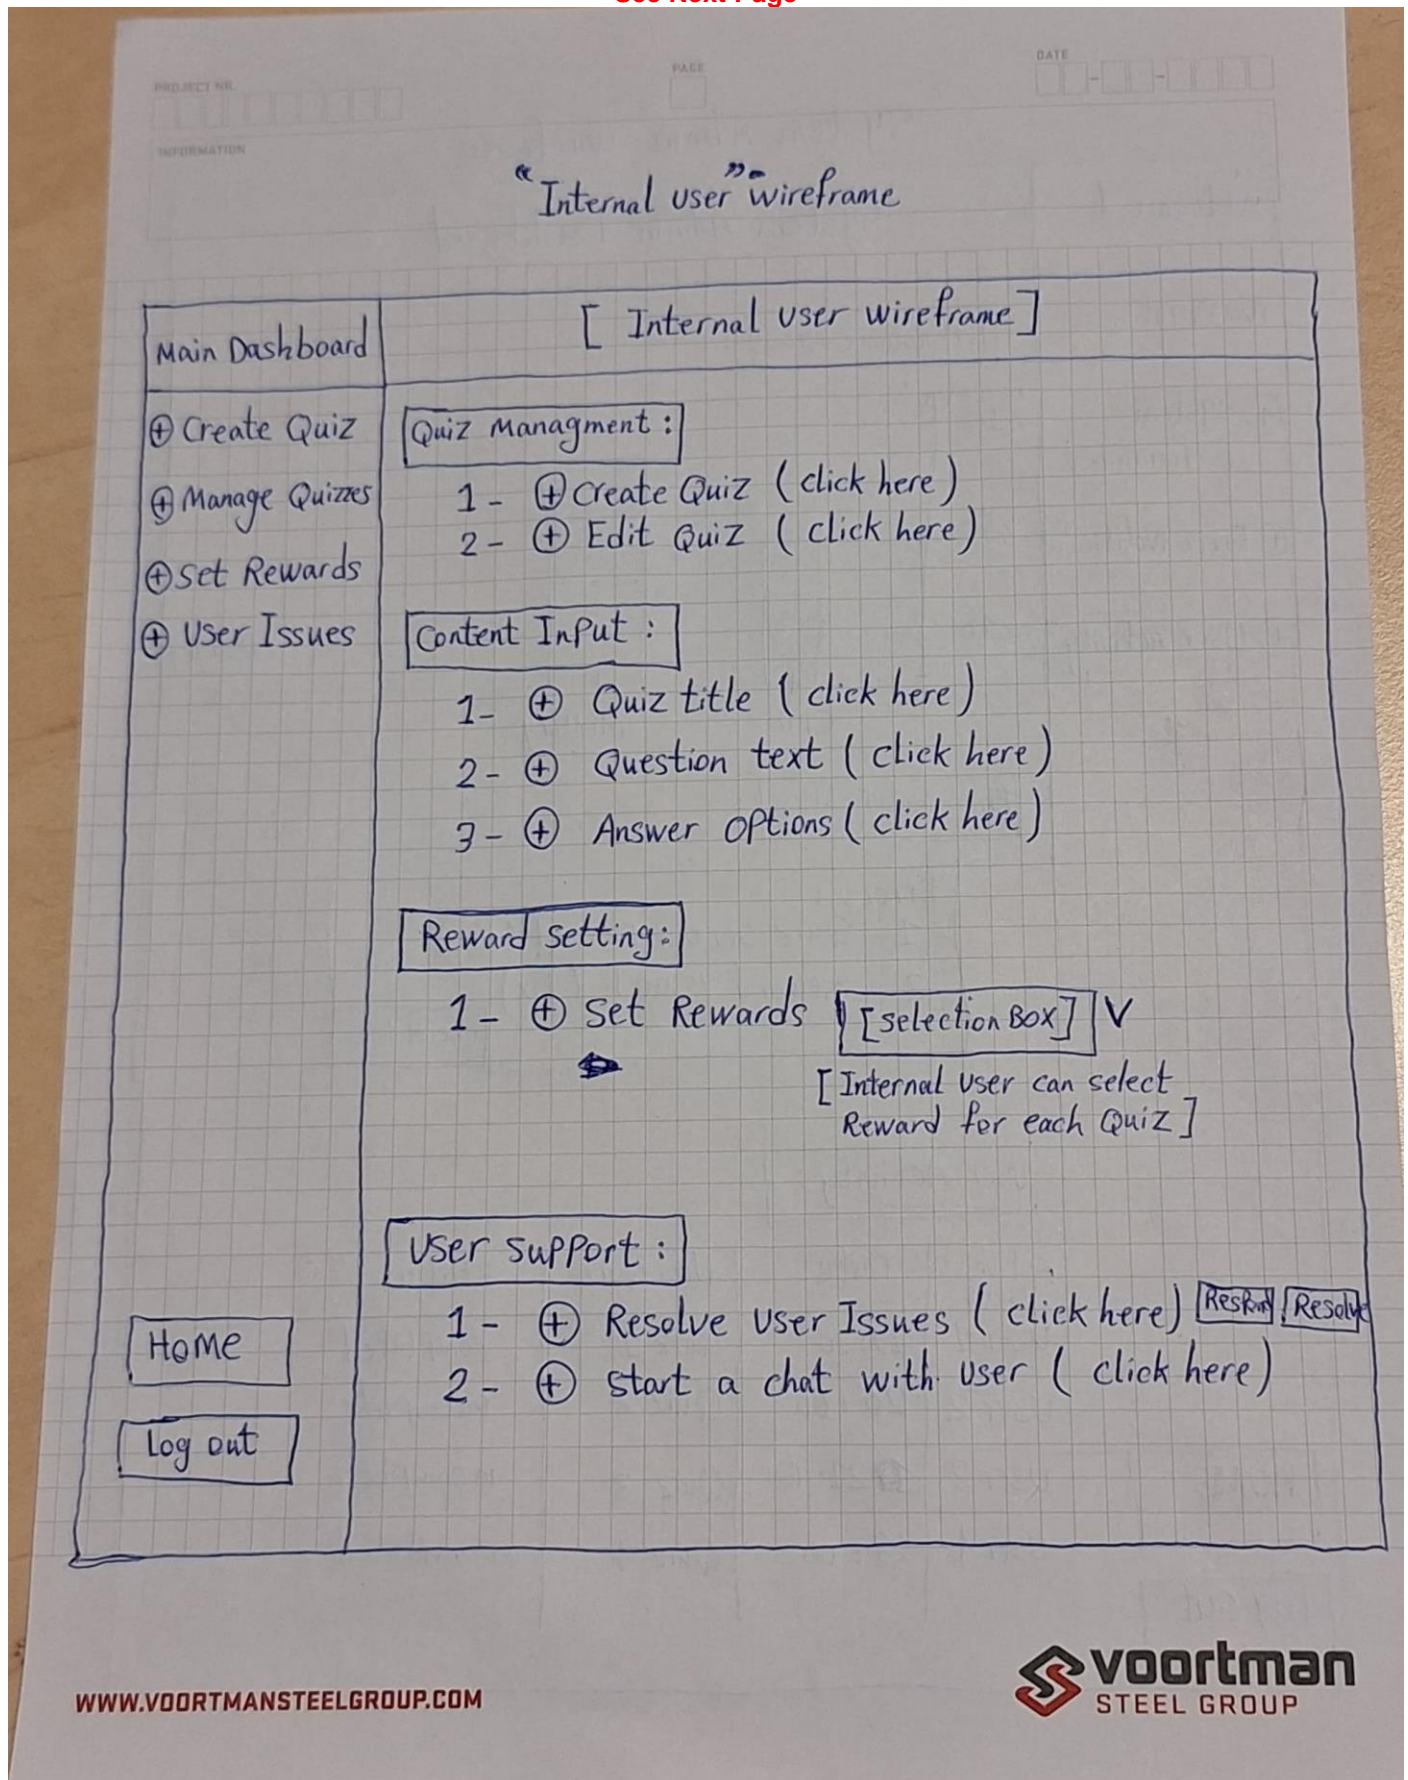 See Next Page
PROJECT NR.
PAGE
DATE
INFORMATION
"Internal user" wireframe
Main Dashboard
[ Internal user wireframe ]
⊕ Create Quiz
⊕ Manage Quizzes
⊕ Set Rewards
⊕ User Issues
Quiz Managment :
1- ⊕ Create Quiz ( click here )
2- ⊕ Edit Quiz ( click here )
Content Input :
1- ⊕ Quiz title ( click here )
2- ⊕ Question text ( click here )
3- ⊕ Answer options ( click here )
Reward setting :
1- ⊕ Set Rewards [selection Box] V
[ Internal user can select
Reward for each Quiz ]
User support :
1- ⊕ Resolve User Issues ( click here ) Resolve
2- ⊕ start a chat with user ( click here )
Home
Log out
WWW.VOORTMANSTEELGROUP.COM
voortman
STEEL GROUP